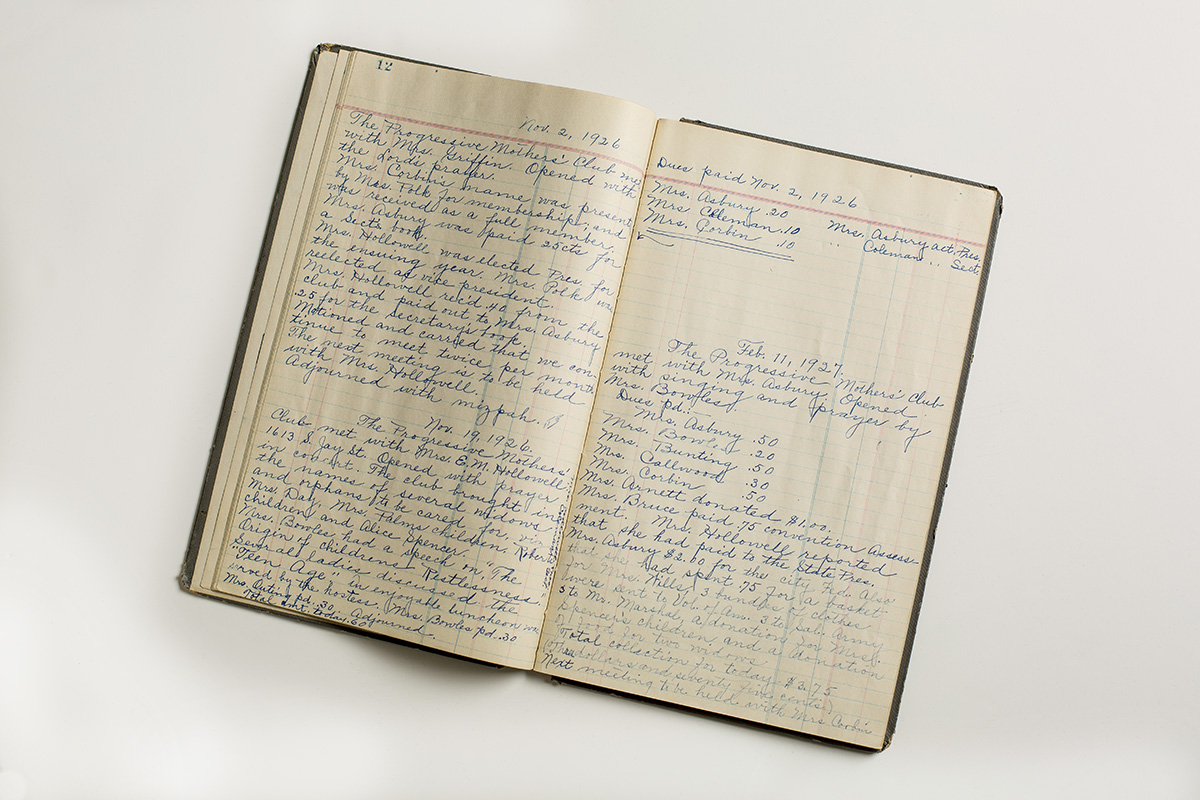 12
Nov. 2, 1926
The Progressive Mothers' Club met
with Mrs. Griffin. Opened with
the Lords prayer.
Mrs. Corbin's name was present
by Mrs. Polk for membership; and
was received as a full member.
Mrs. Asbury was paid 25cts for
a Sect's book.
Mrs. Hollowell was elected Pres. for
the ensuing year. Mrs. Polk was
reelected as vice president.
Mrs. Hollowell rec'd .40 from the
club and paid out to Mrs. Asbury
.25 for the Secretary's book.
Motioned and carried that we con-
tinue to meet twice per month
The next meeting is to be held
with Mrs. Hollowell.
Adjourned with mizpah.
Nov. 19, 1926.
The Progressive Mothers'
Club met with Mrs. E. M. Hollowell:
1613 S. Jay St. Opened with prayer
in concert. The club brought in
the names of several widows
and orphans to be cared for, viz
Mrs. Day, Mrs. Palms children, Robert
children and Alice Spencer.
Mrs. Bowles had a speech on, "The
Origin of childrens Restlessness.
Several ladies discussed the
"Teen Age." An enjoyable luncheon was
served by the hostess. Mrs. Bowles pd. .30
Mrs. pd. .30. Adjourned.
Total Amt. today .60
Dues paid Nov. 2, 1926
Mrs. Asbury .20
Mrs. Coleman .10
Mrs. Corbin .10
Mrs. Asbury act. Pres.
" Coleman " Sect.
Feb. 11, 1927.
The Progressive Mothers' Club
met with Mrs. Asbury. Opened
with singing and prayer by
Mrs. Bowles.
Dues pd.:-
Mrs. Asbury .50
Mrs. Bowles .20
Mrs. Bunting .50
Mrs. Callwood .30
Mrs. Corbin .50
Mrs. Arnett donated $1.00.
Mrs. Bruce paid .75 convention Assess-
ment. Mrs. Hollowell reported
that she had paid to the State Pres.
Mrs. Asbury $2.00 for the city Fed. Also
that she had spent .75 for a basket
for Mrs. Wills, 3 bundles of clothes
were sent to Vol. of Am. 3 to Sal. Army
3 to Mr. Marshal, a donation for Mrs.
Spencer's children, and a donation
of food for two widows.
Total collection for today $3.75
(Three dollars and seventy five cents)
Next meeting to be held with Mrs Corbin